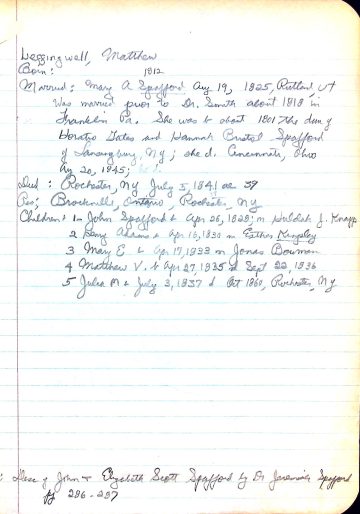 Leggingwell, Matthew
Born: 1812
Married: Mary A Spafford Aug 19, 1825, Rutland, Vt
Was married prior to Dr. Smith about 1818 in
Franklin Pa. She was b about 1801 the dau of
Horatio Gates and Hannah Bristol Spafford
of Lansingburg, Ny; she d. Cincinnati, Ohio
Aug 20, 1845;
Died: Rochester, Ny July 5, 1841 ae 39
Res; Brockville, Ontario, Rochester, Ny
Children: 1 John Spafford b Apr 26, 1828; m Huldah J. Knapp
2 Adams b Apr 16, 1830 m Esther Kingsley
3 Mary E b Apr 17, 1833 m Jonas Bowman
4 Matthew V. b Apr 27, 1835 d Sept 22, 1836
5 Julia M b July 3, 1837 d Oct 1860, Rochester, Ny
: Desc of John & Elizabeth Scott Spafford by Dr Jeremiah Spafford
pg 286-287